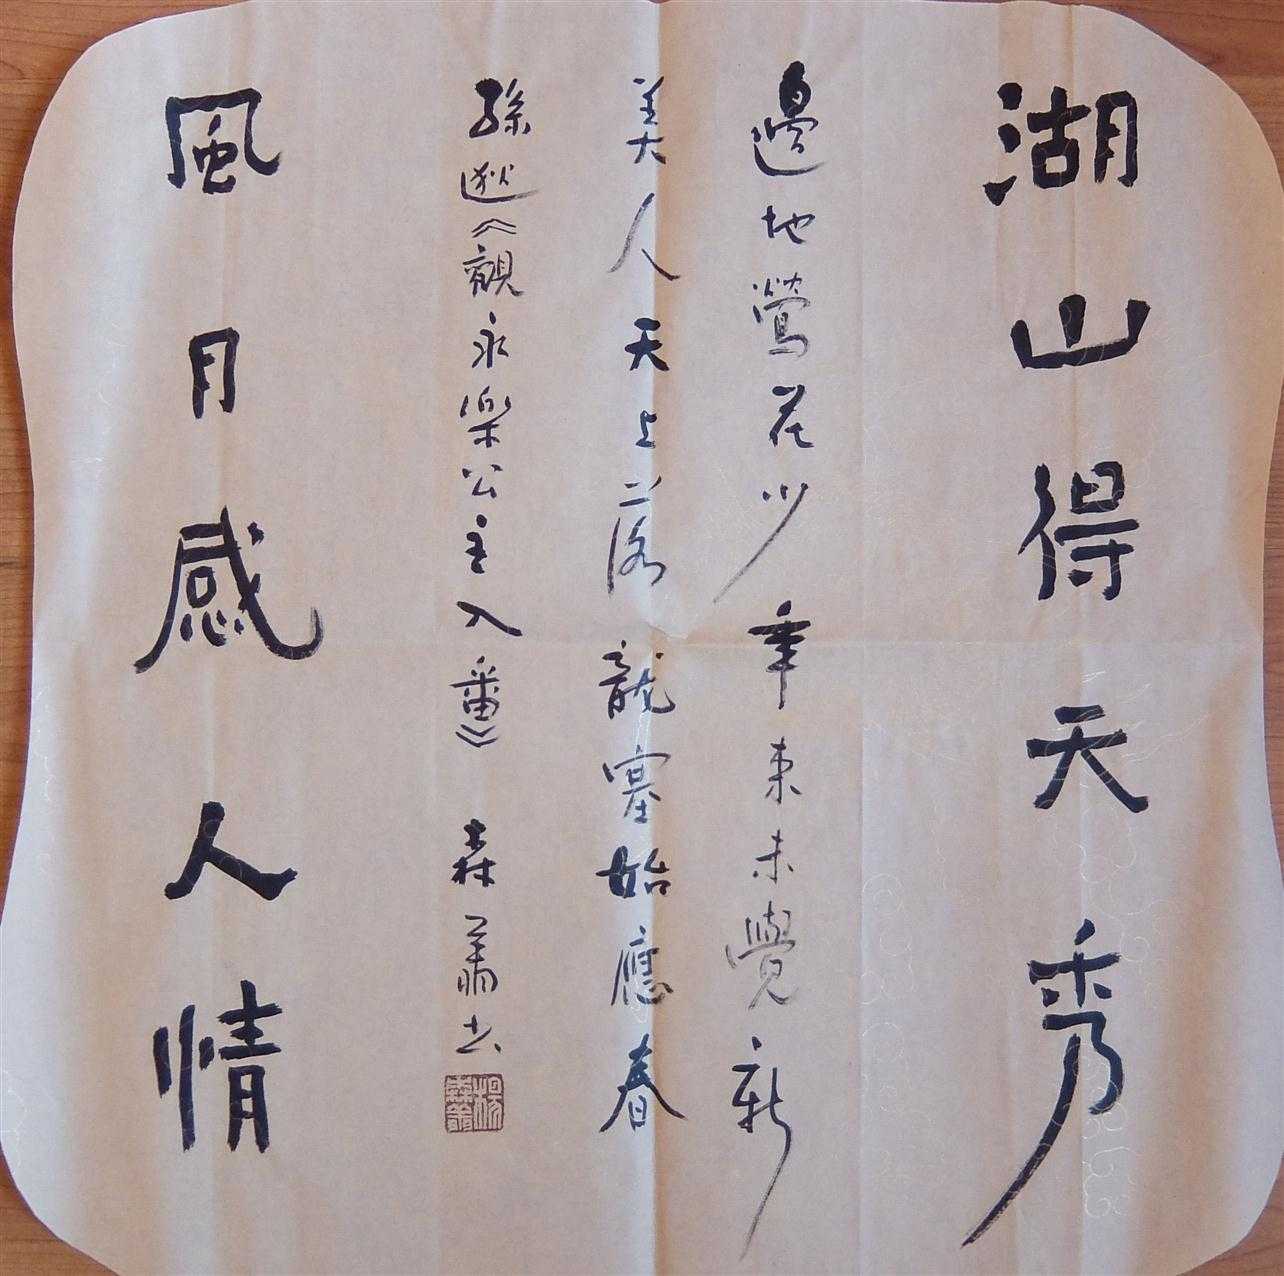 湖山得天秀
邊地鶯花少年來未覺新
美人天上落龍塞始應春
孫逖《觀永樂公主入番》 森书
風月感人情